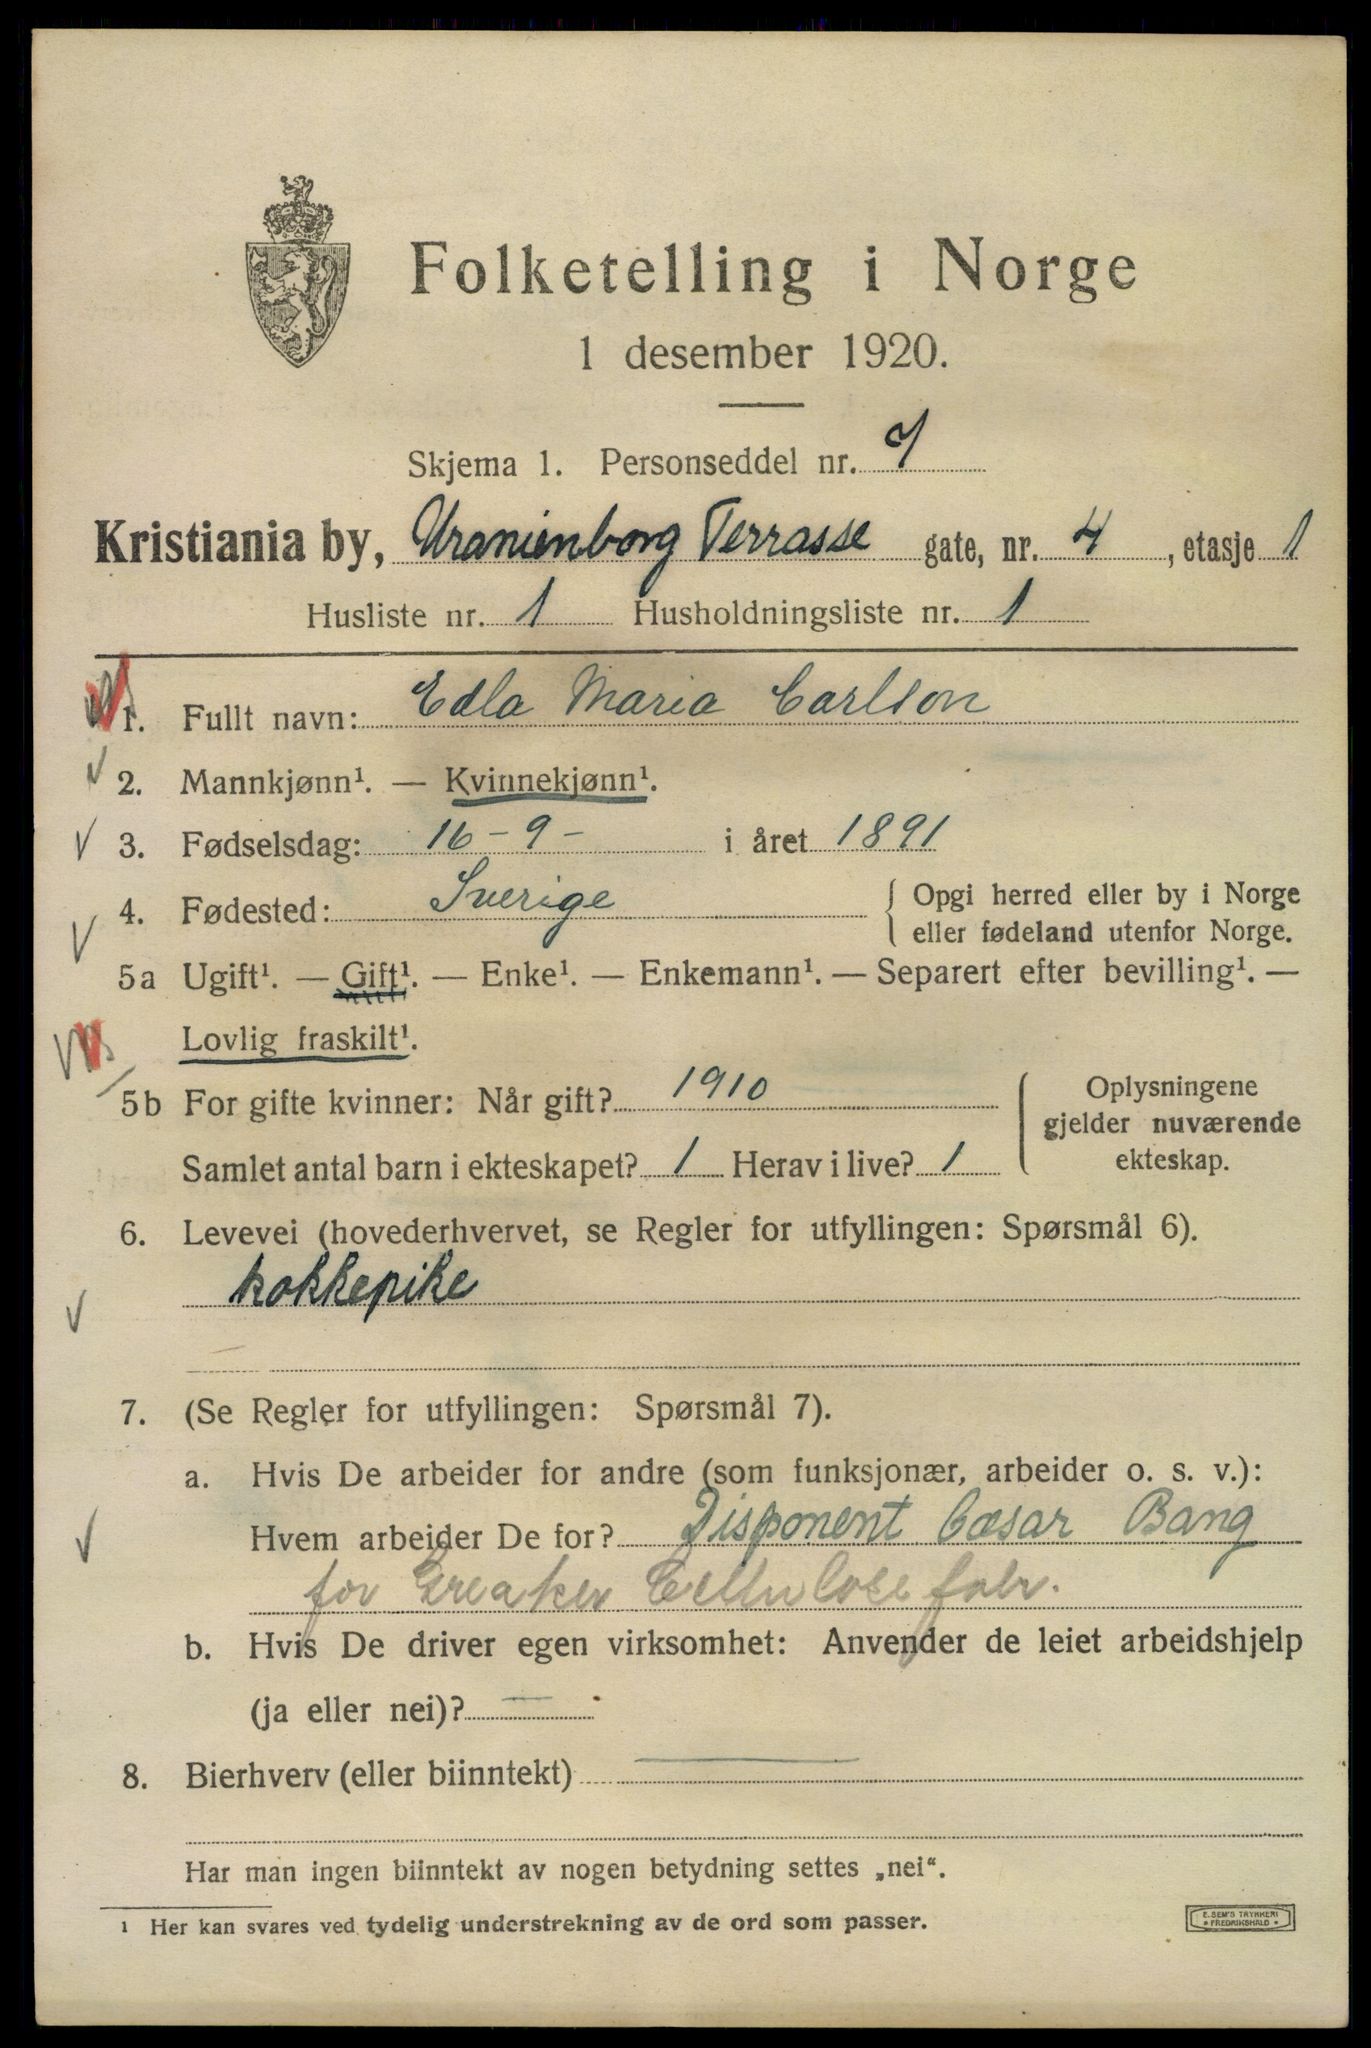 Folketelling i Norge
1 desember 1920.
Skjema 1. Personseddel nr. 7
Kristiania by, Uranienborg Terrasse gate, nr. 4, etasje 1
Husliste nr. 1 Husholdningsliste nr. 1
1. Fullt navn: Edla Maria Carlson
2. Mannkjønn¹. — Kvinnekjønn¹.
3. Fødselsdag: 16-9- i året 1891
4. Fødested: Sverige { Opgi herred eller by i Norge
eller fødeland utenfor Norge.
5a Ugift¹. — Gift¹. — Enke¹. — Enkemann¹. — Separert efter bevilling¹. —
Lovlig fraskilt¹.
5b For gifte kvinner: Når gift? 1910
Samlet antal barn i ekteskapet? 1 Herav i live? 1
Oplysningene
gjelder nuværende
ekteskap.
6. Levevei (hovederhvervet, se Regler for utfyllingen: Spørsmål 6).
kokkepike
7. (Se Regler for utfyllingen: Spørsmål 7).
a. Hvis De arbeider for andre (som funksjonær, arbeider o. s. v.):
Hvem arbeider De for? Disponent Cæsar Bang
for Greaker Cellulosefabr.
b. Hvis De driver egen virksomhet: Anvender de leiet arbeidshjelp
(ja eller nei)? —
8. Bierhverv (eller biinntekt) —
Har man ingen biinntekt av nogen betydning settes „nei“.
¹ Her kan svares ved tydelig understrekning av de ord som passer.
E. SEM'S TRYKKERI
FREDRIKSHALD